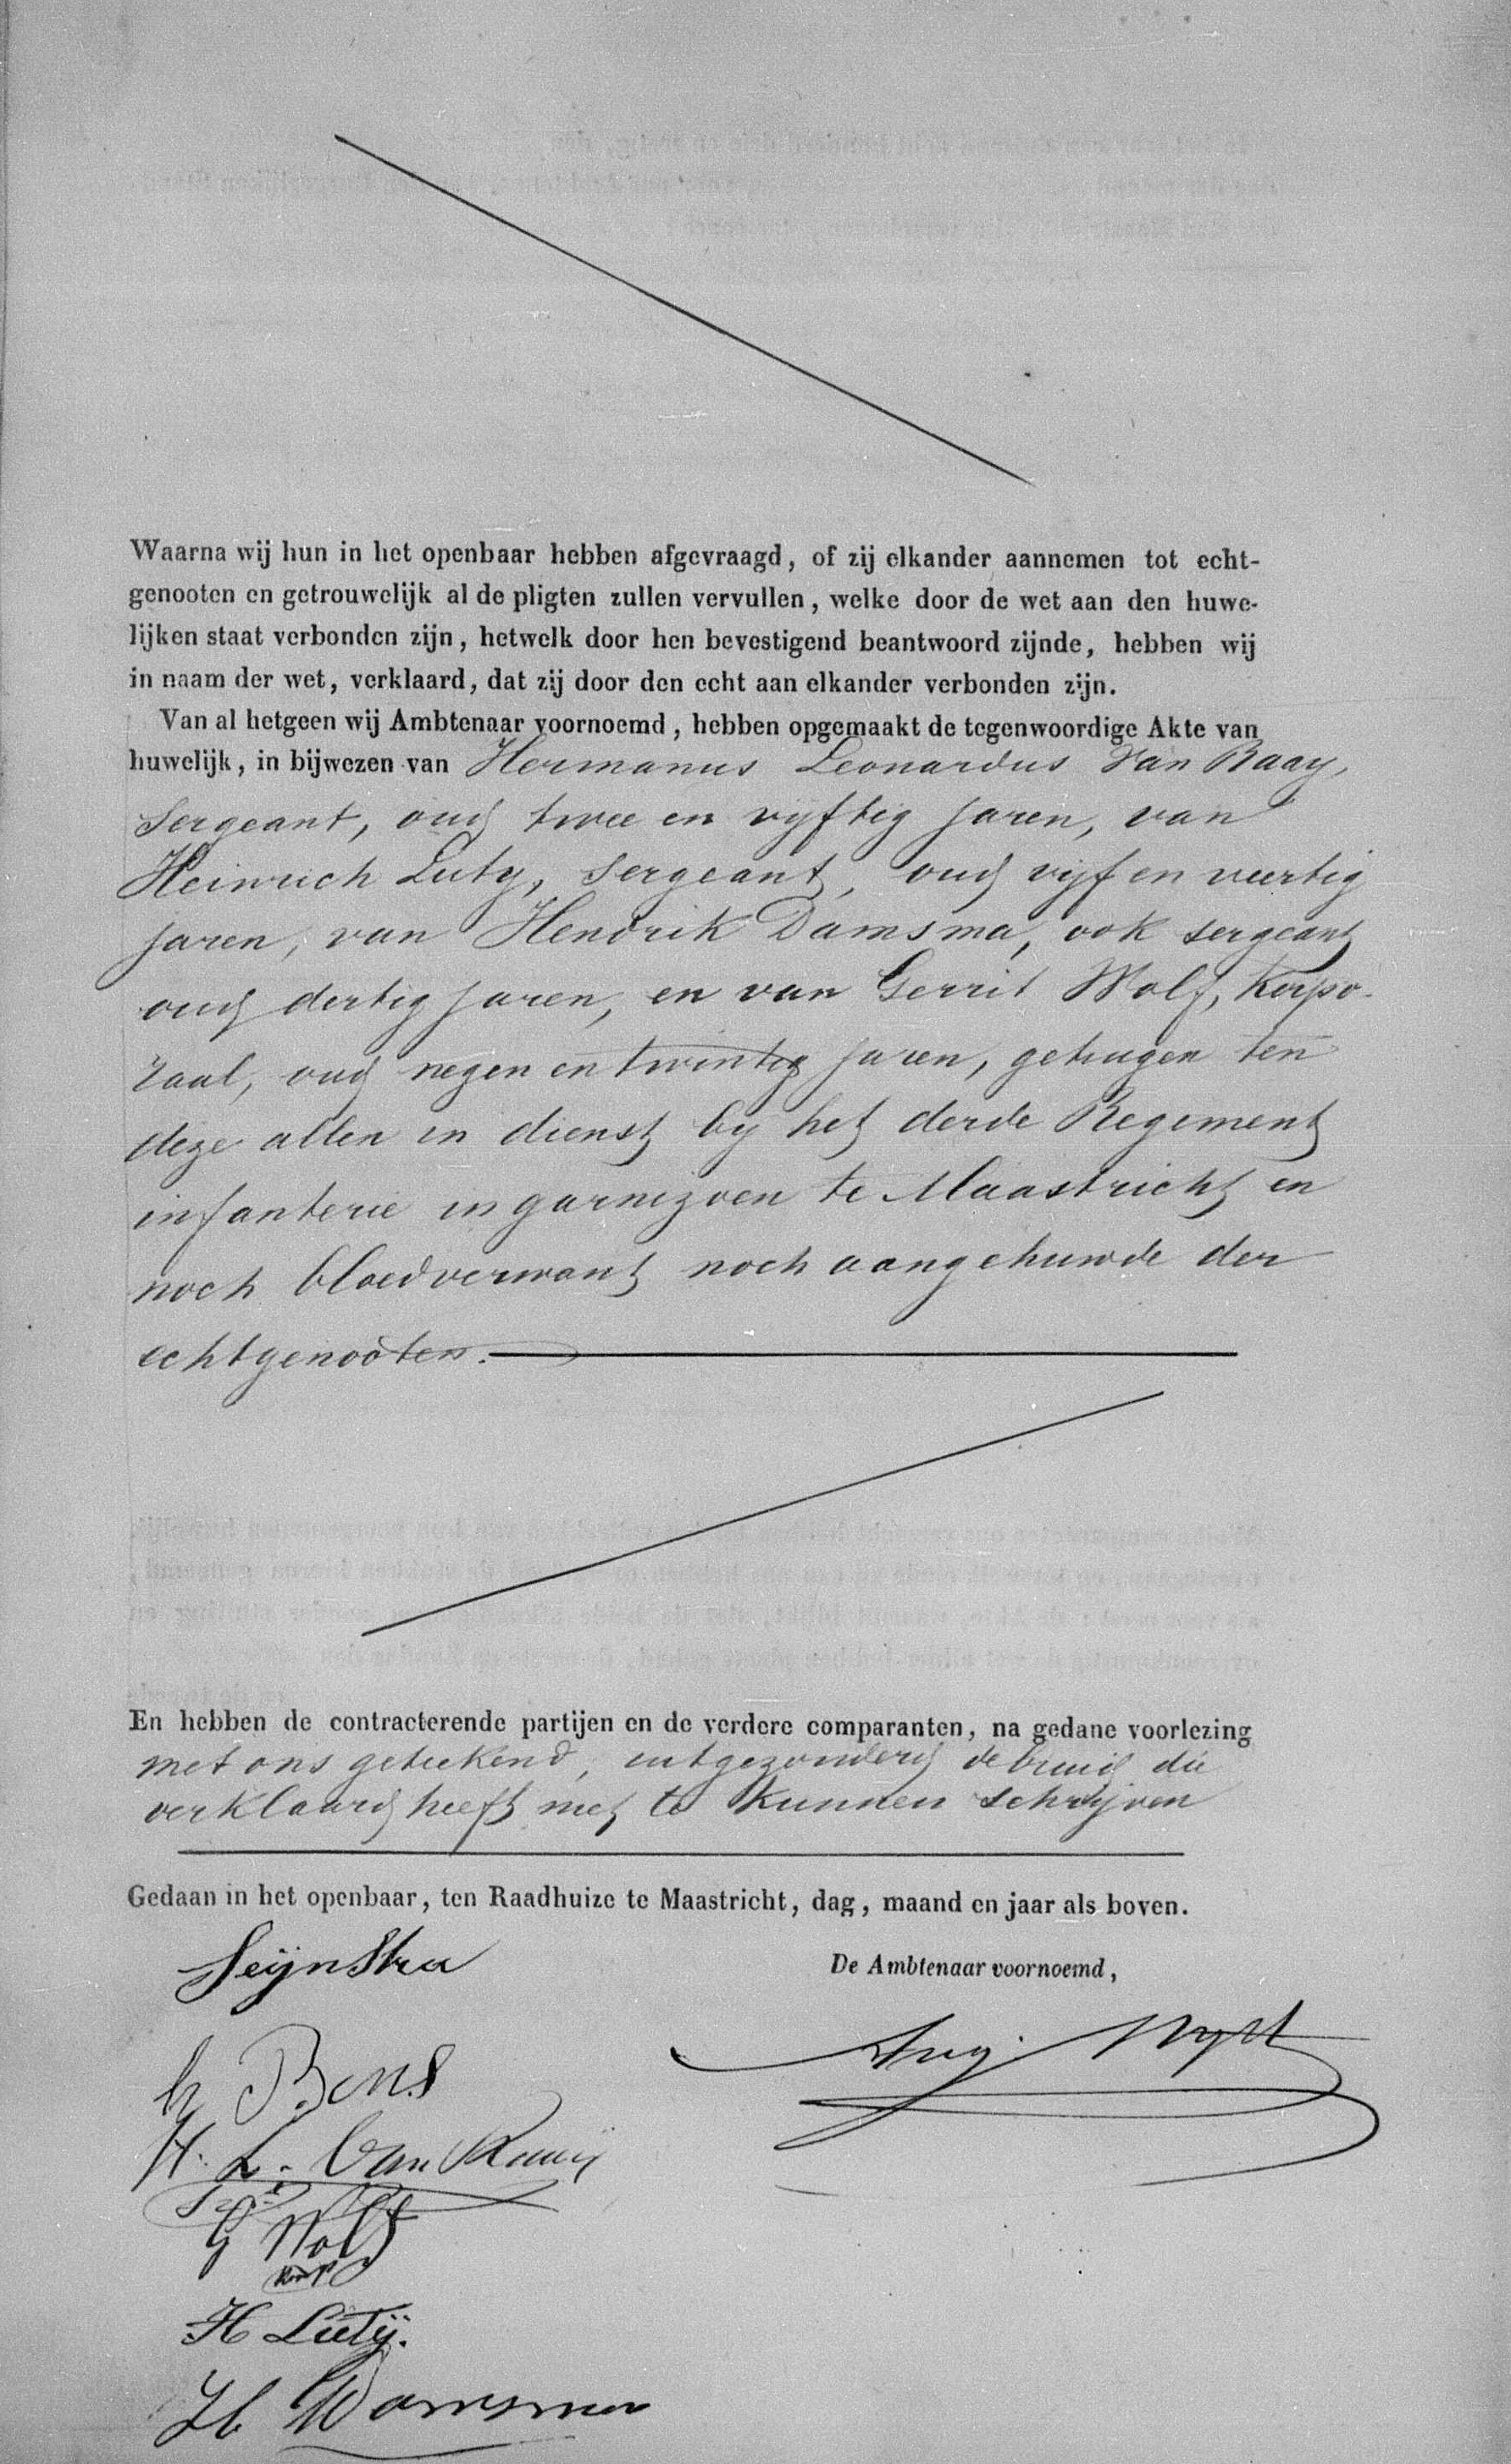 Waarna wij hun in het openbaar hebben afgevraagd, of zij elkander aannemen tot echt-
genooten en getrouwelijk al de pligten zullen vervullen, welke door de wet aan den huwe-
lijken staat verbonden zijn, hetwelk door hen bevestigend beantwoord zijnde, hebben wij
in naam der wet, verklaard, dat zij door den echt aan elkander verbonden zijn.
Van al hetgeen wij Ambtenaar voornoemd, hebben opgemaakt de tegenwoordige Akte van
huwelijk, in bijwezen van Hermanus Leonardus Van Raay,
Sergeant, oud twee en vyftig jaren, van
Heinrich Luty, Sergeant, oud vyf en veertig
jaren, van Hendrik Damsma, ook sergeant
oud dertig jaren, en van Gerrit Wolf, Korpo-
raal, oud negen en twintig jaren, getuigen ten
deze allen in dienst by het derde Regiment
infanterie in garnizoen te Maastricht en
noch bloedverwant noch aangehuwde der
echtgenooten.
En hebben de contracterende partijen en de verdere comparanten, na gedane voorlezing
met ons geteekend, uitgezonderd de bruid die
verklaard heeft niet te kunnen schryven
Gedaan in het openbaar, ten Raadhuize te Maastricht, dag, maand en jaar als boven.
Seijnstra
De Ambtenaar voornoemd,
Bens
H. L. Van Raaij
G Wolf
Korp
H Lutÿ.
H Damsma